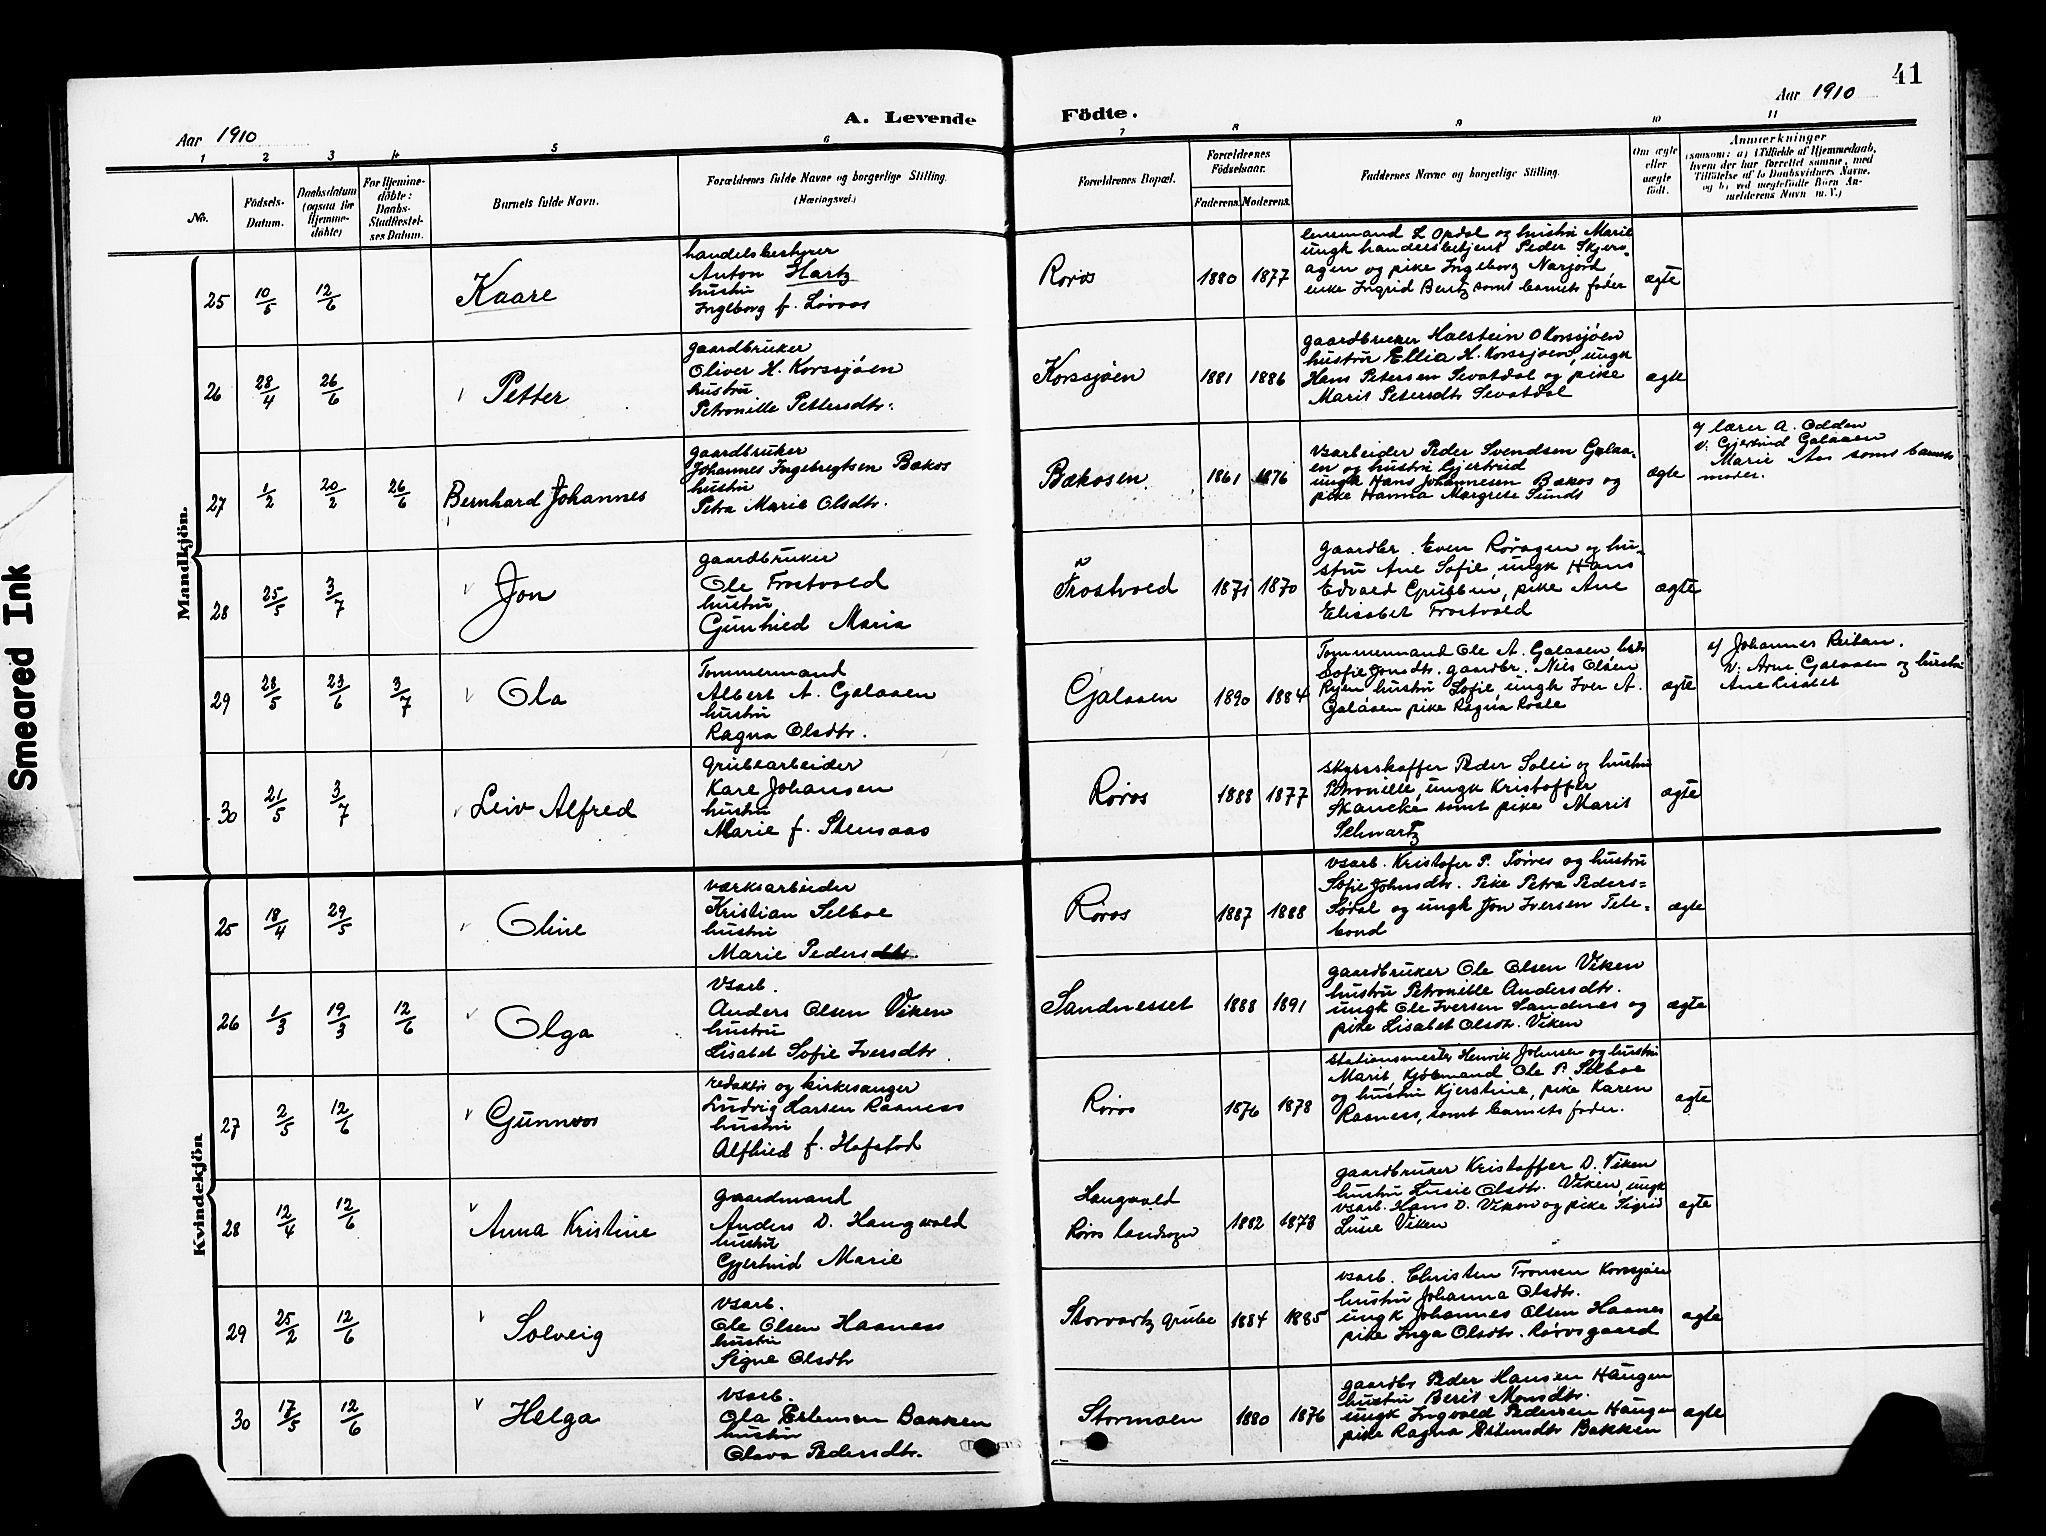 41
Aar 1910
A. Levende
Födte.
Aar 1910
1 2 3 4 5 6 7 8 9 10 11
No.
Födsels-
Datum.
Daabsdatum
(ogsaa for
Hjemme-
döbte)
For Hjemme-
döbte:
Daabs-
Stadfæstel-
ses Datum.
Barnets fulde Navn.
Forældrenes fulde Navne og borgerlige Stilling.
(Næringsvei.)
Forældrenes Bopæl.
Forældrenes
Födselsaar.
Faderens. Moderens.
Faddernes Navne og borgerlige Stilling.
Om ægte
eller
uægte
født.
Anmærkninger
(saasom: a) i Tilfælde af Hjemmedaab,
hvem der har forrettet samme, med
Tilföielse af to Daabsvidners Navne,
og b) ved uægtefödte Börn An-
melderens Navn m. V.)
Mandkjön.
25 10/5 12/6 Kaare
handelsbestyrer
Anton Hartz
hustru
Ingeborg f. Løvaas
Røros 1880 1877
lensmand L Opdal og hustru Marie
ungk handelsbetjent Peder Skjers-
agen og pike Ingeborg Narjord
enke Ingrid Bentz samt barnets fader
ægte
26 28/4 26/6 Petter
gaardbruker
Oliver H. Korssjøen
hustru
Petronille Pettersdtr.
Korssjøen 1881 1886
gaardbruker Halstein O Korssjøen
hustru Ellia H. Korssjøen, ungk
Hans Petersen Sevatdal og pike
Marit Petersdtr Sevatdal
ægte
27 1/2 20/2 26/6 Bernhard Johannes
gaardbruker
Johannes Ingebregtsen Bækos
hustru
Petra Marie Olsdtr.
Bækosen 1861 1876
vsarbeider Peder Svendsen Galaa-
en og hustru Gjertrud
ungk Hans Johannesen Bækos og
pike Hanna Margrete Sunds
ægte
a) lærer A. Odden
v: Gjertrud Galaaen
Marie Aas samt barnets
moder.
28 25/5 3/7 Jon
gaardbruker
Ole Frostvold
hustru
Gunhild Maria
Frostvold 1871 1870
gaardbr. Even Røragen og hu-
stru Ane Sofie, ungk Hans
Edvald Grubben, pike Ane
Elisabet Frostvold
ægte
29 28/5 23/6 3/7 Ola
Tømmermand
Albert A. Galaaen
hustru
Ragna Olsdtr.
Galaaen 1890 1884
Tømmermand Ole A. Galaaen
Sofie Jonsdtr. gaardbr. Niels Olsen
Ryen hustru Sofie, ungk Iver A.
Galåaen pike Ragna Røsle
ægte
a) Johannes Reitan.
v: Arne Galaaen og hustru
Ane Lisabet
30 21/5 3/7 Leiv Alfred
Grubearbeider
Karl Johansen
hustru
Marie f. Stensaas
Røros 1888 1877
skysskaffer Peder Solli og hustru
Petronille, ungk Kristoffer
Skancke samt pike Marit
Schwartz
ægte
Kvindekjön
25 18/4 29/5 Oline
værksarbeider
Kristian Selboe
hustru
Marie Pedersdtr.
Røros 1887 1888
vsarb. Kristofer P. Tørres og hustru
Sofie Johnsdtr. Pike Petra Peders-
Sødal og ungk Jon Iversen Tele-
bond
ægte
26 1/3 19/3 12/6 Olga
Vsarb.
Anders Olsen Viken
hustru
Lisabet Sofie Iversdtr
Sandnesset 1888 1891
gaardbruker Ole Olsen Viken
hustru Petronille Andersdtr.
ungk Ole Iversen Sandnes og
pike Lisabet Olsdtr. Viken
ægte
27 2/5 12/6 Gunnvor
redaktør og kirkesanger
Ludvig Larsen Raaness
hustru
Alfhild f. Hofstad
Røros 1876 1878
stationsmester Henrik Johnsen og hustru
Marit, Kjøbmand Ole P. Selboe
og hustru Kjerstine, pike Karen
Raaness, samt barnets fader.
ægte
28 12/4 12/6 Anna Kristine
gaardmand
Anders D. Haugvold
hustru
Gjertrud Marie
Haugvold
Røros landsogn 1882 1878
gaardbruker Kristoffer D. Viken
hustru Lusie Olsdtr. Viken, ungk
vsarb. Hans D. Viken og pike Sigrid
Lusie Viken
ægte
29 25/2 12/6 Solveig
Vsarb.
Ole Olsen Haaness
hustru
Signe Olsdtr
Storvartz grube 1884 1885
vsarb. Christen Tronsen Korssjøen
hustru Johanna Olsdtr.
ungk Johannes Olsen Haanes
pike Inga Olsdtr. Rørosgaard
ægte
30 17/5 12/6 Helga
vsarb.
Ola Estensen Bakken
hustru
Olava Pedersdtr.
Stormoen 1880 1876
gaardbr Peder Hansen Haugen
hustru Berit Monsdtr.
ungk Ingvald Pedersen Haugen
pike Ragna Estensdtr Bakken
ægte
Smeared Ink